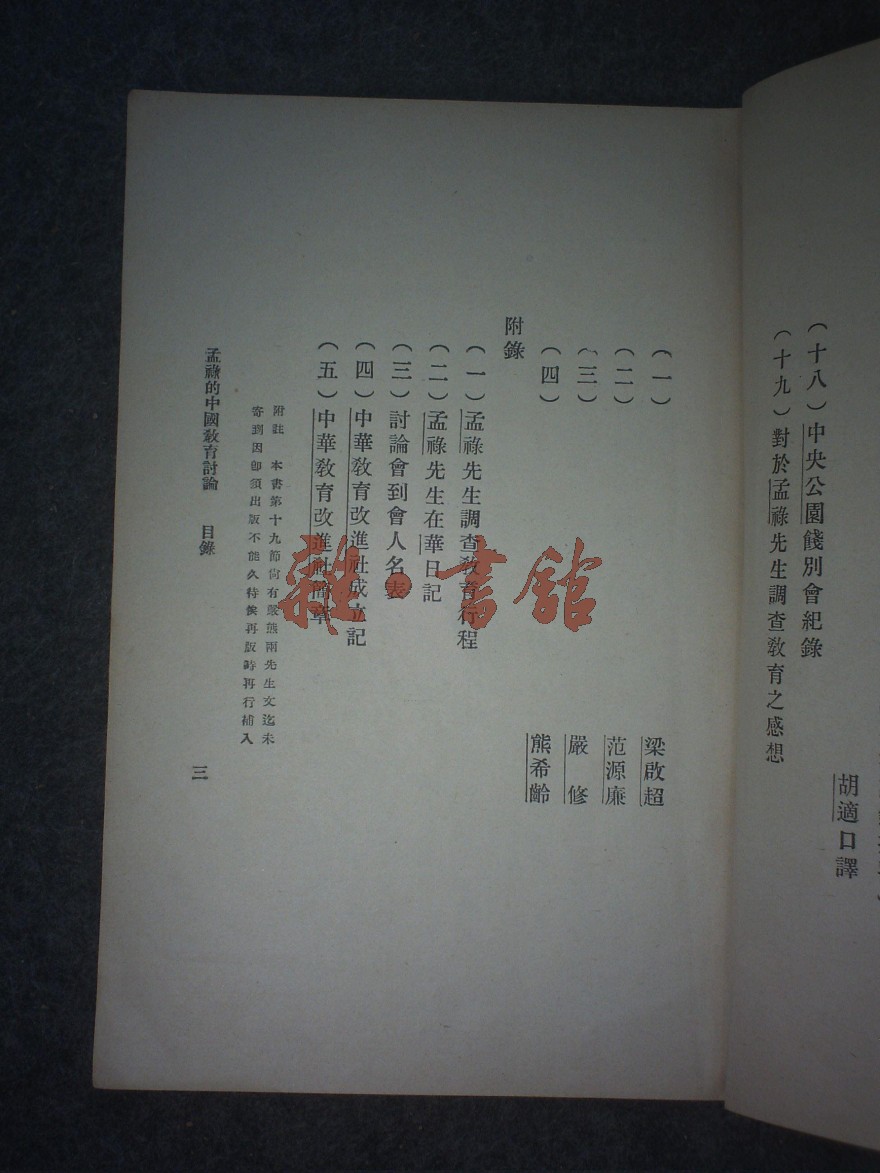 胡適口譯
(十八)中央公園餞別會紀錄
(十九)對於孟祿先生調查教育之感想
(一) 梁啟超
(二) 范源廉
(三) 嚴 修
(四) 熊希齡
附錄
(一)孟祿先生調查教育行程
(二)孟祿先生在華日記
(三)討論會到會人名表
(四)中華教育改進社成立記
(五)中華教育改進社簡章
附註 本書第十九節尙有嚴熊兩先生文迄未
寄到因卽須出版不能久待俟再版時再行補入
孟祿的中國教育討論 目錄
三
雜·書館